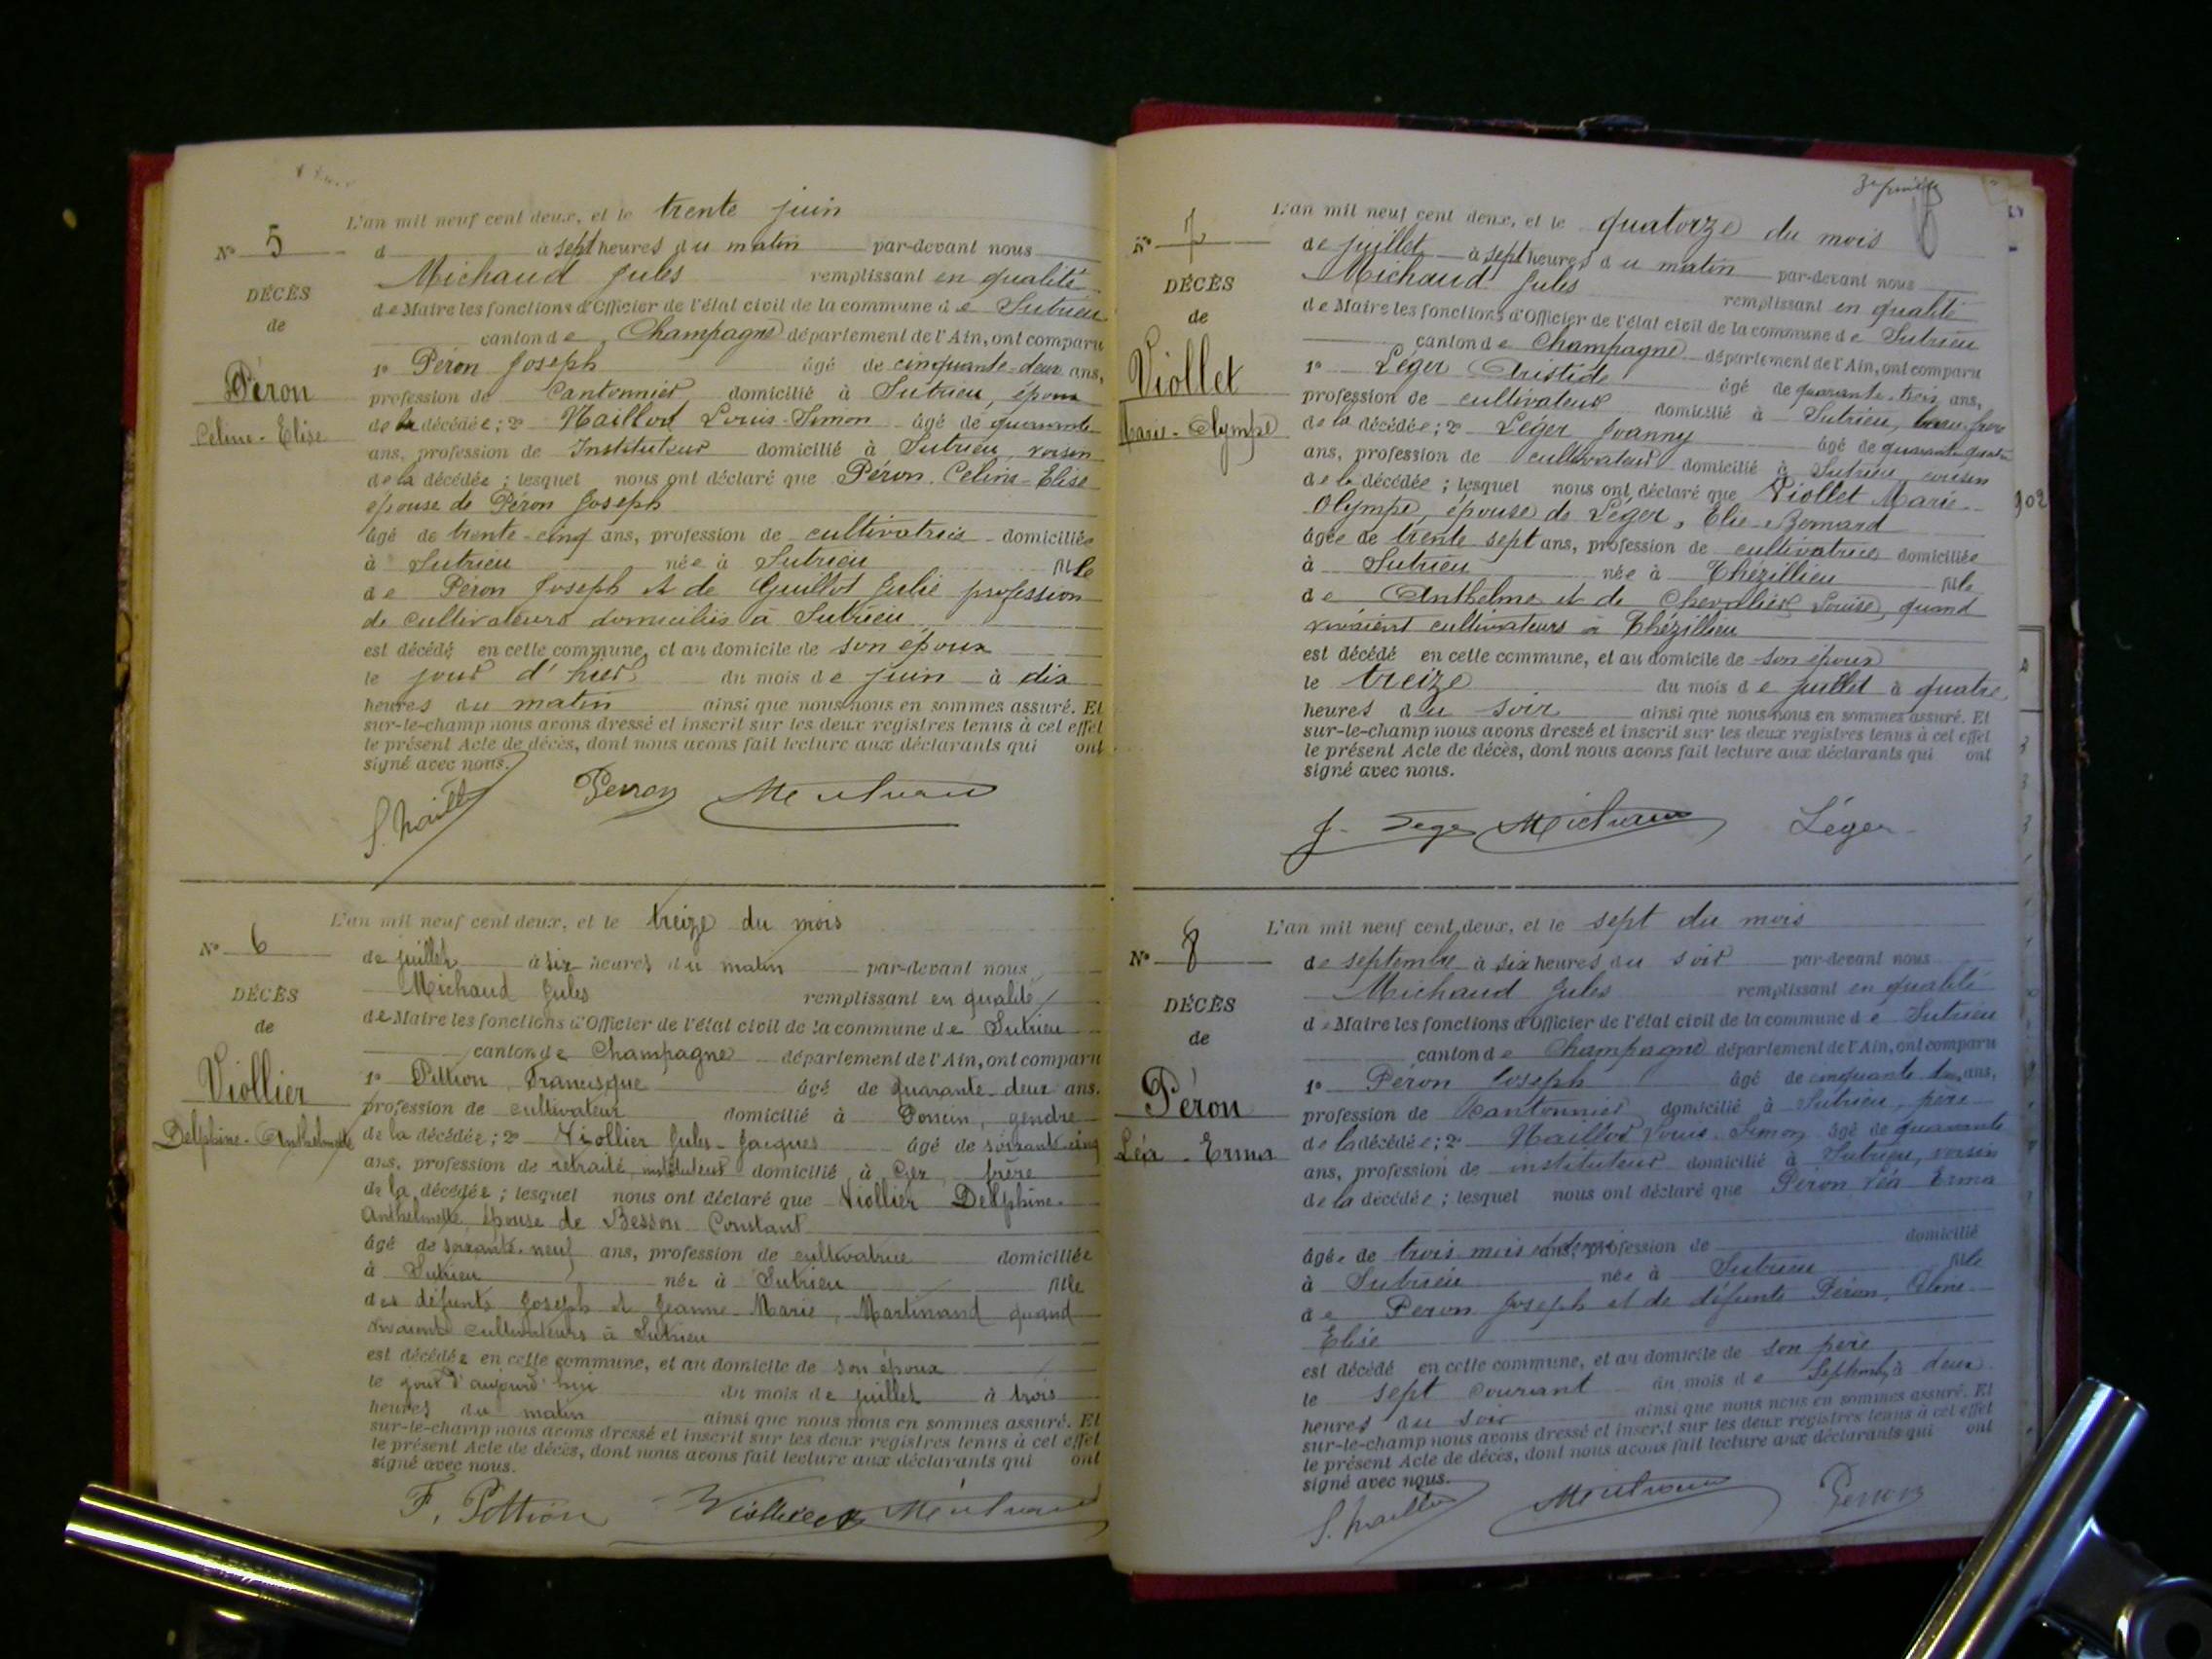 L'an mil neuf cent deux, et le trente juin
N° 5
d à sept heures du matin par-devant nous
Michaud Jules remplissant en qualité
DÉCÈS
de Maire les fonctions d'Officier de l'état civil de la commune de Sutrieu
de
canton de Champagne département de l'Ain, ont comparu
1° Péron Joseph âgé de cinquante-deux ans,
Péron
profession de Cantonnier domicilié à Sutrieu, époux
Celine-Elise
de la décédée ; 2° Naillod Louis-Simon âgé de quarante
ans, profession de Instituteur domicilié à Sutrieu, voisin
de la décédée ; lesquel nous ont déclaré que Péron Celine-Elise
épouse de Péron Joseph
âgé de trente-cinq ans, profession de cultivatrice domiciliée
à Sutrieu née à Sutrieu fille
de Péron Joseph et de Guillot Julie profession
de cultivateurs domiciliés à Sutrieu
est décédé en cette commune, et au domicile de son époux
le jour d'hier du mois de juin à dix
heures du matin ainsi que nous nous en sommes assuré. Et
sur-le-champ nous avons dressé et inscrit sur les deux registres tenus à cet effet
le présent Acte de décès, dont nous avons fait lecture aux déclarants qui ont
signé avec nous.
Perron
L'an mil neuf cent deux, et le treize du mois
N° 6
de juillet à six heures du matin par-devant nous
Michaud Jules remplissant en qualité
DÉCÈS
de Maire les fonctions d'Officier de l'état civil de la commune de Sutrieu
de
canton de Champagne département de l'Ain, ont comparu
Viollier
1° Pittion Francisque âgé de quarante-deux ans.
profession de cultivateur domicilié à Poncin, gendre
Delphine-Anthelmette
de la décédée ; 2° Viollier Jules-Jacques âgé de soixante-cinq
ans, profession de retraité, instituteur domicilié à frère
de la décédée ; lesquel nous ont déclaré que Viollier Delphine-
Anthelmette, épouse de Besson Constant
âgé de soixante-neuf ans, profession de cultivatrice domiciliée
à Sutrieu née à Sutrieu fille
des défunts Joseph et Jeanne-Marie, Martinand quand
vivaient cultivateurs à Sutrieu
est décédée en cette commune, et au domicile de son époux
le jour d'aujourd'hui du mois de juillet à trois
heures du matin ainsi que nous nous en sommes assuré. Et
sur-le-champ nous avons dressé et inscrit sur les deux registres tenus à cet effet
le présent Acte de décès, dont nous avons fait lecture aux déclarants qui ont
signé avec nous.
F. Pittion Viollier
L'an mil neuf cent deux, et le quatorze du mois
N° 7
de juillet à sept heures du matin par-devant nous
DÉCÈS
Michaud Jules remplissant en qualité
de
de Maire les fonctions d'Officier de l'état civil de la commune de Sutrieu
canton de Champagne département de l'Ain, ont comparu
Viollet
1° Léger Aristide âgé de quarante-trois ans,
profession de cultivateur domicilié à Sutrieu, beau-frère
Marie-Olympe
de la décédée ; 2° Léger Joanny âgé de quarante-quatre
ans, profession de cultivateur domicilié à Sutrieu, cousin
de la décédée ; lesquel nous ont déclaré que Viollet Marie-
Olympe, épouse de Léger, Elie-Bernard
902
âgée de trente sept ans, profession de cultivatrice domiciliée
à Sutrieu née à Thézillieu fille
de Anthelme et de Chevalier Louise, quand
vivaient cultivateurs à Thézillieu
est décédé en cette commune, et au domicile de son époux
le treize du mois de juillet à quatre
heures du soir ainsi que nous nous en sommes assuré. Et
sur-le-champ nous avons dressé et inscrit sur les deux registres tenus à cet effet
le présent Acte de décès, dont nous avons fait lecture aux déclarants qui ont
signé avec nous.
J. Leger Michaud Léger
L'an mil neuf cent deux, et le sept du mois
N° 8
de septembre à six heures du soir par-devant nous
Michaud Jules remplissant en qualité
DÉCÈS
de Maire les fonctions d'Officier de l'état civil de la commune de Sutrieu
de
canton de Champagne département de l'Ain, ont comparu
Péron
1° Péron Joseph âgé de cinquante ans,
profession de Cantonnier domicilié à Sutrieu, père
Léa-Erma
de la décédée ; 2° Naillod Louis-Simon âgé de quarante
ans, profession de instituteur domicilié à Sutrieu, voisin
de la décédée ; lesquel nous ont déclaré que Péron Léa Erma
âgée de trois mois ans, profession de domicilié
à Sutrieu née à Sutrieu fille
de Péron Joseph et de défunte Péron, Céline-
Elise
est décédé en cette commune, et au domicile de son père
le sept courant du mois de Septembre à deux
heures du soir ainsi que nous nous en sommes assuré. Et
sur-le-champ nous avons dressé et inscrit sur les deux registres tenus à cet effet
le présent Acte de décès, dont nous avons fait lecture aux déclarants qui ont
signé avec nous.
Perron